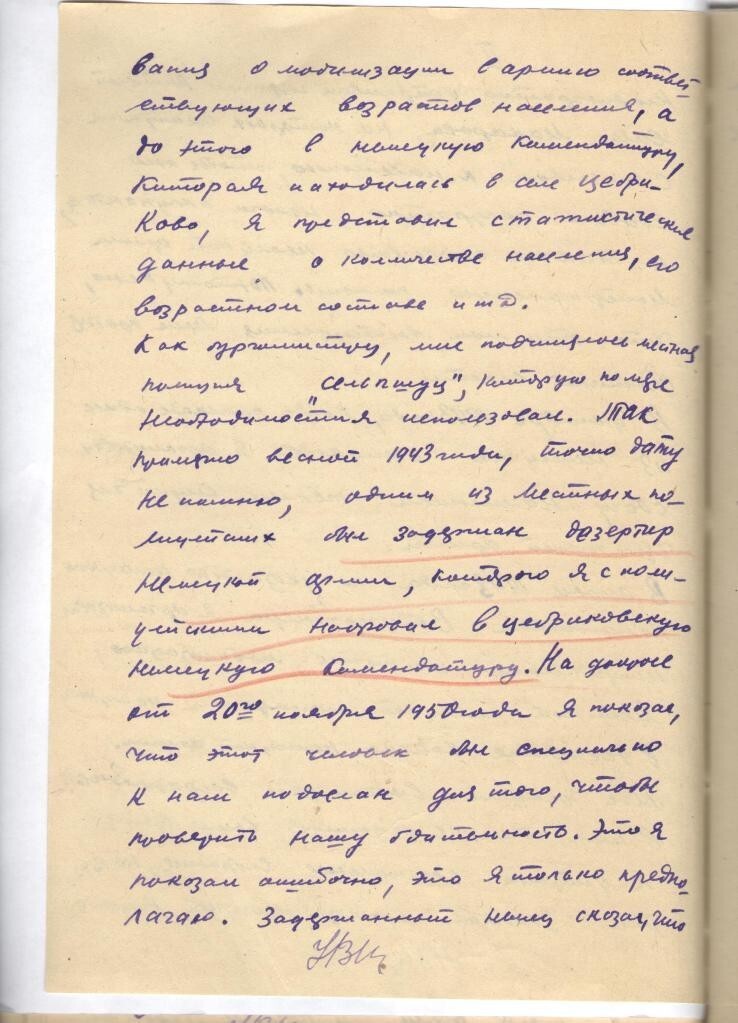 вания о мобилизации в армию соответ
ствующих возрастов населения, а
до этого в немецкую комендатуру,
которая находилась в селе Цебри-
ково, я представил статистические
данные о количестве населения, его
возрастном составе и т.д.
Как бургомистру, мне подчинялась местная
полиция „сельпшуц", которую по мере
необходимости я использовал. Так
примерно весной 1943 года, точно дату
не помню, одним из местных по-
лицейских был задержан дезертир
немецкой армии, которого я с поли-
цейскими направил в цебриковскую
немецкую комендатуру. На допросе
от 20го ноября 1950 года я показал,
что этот человек был специально
к нам подослан для того, чтобы
проверить нашу бдительность. Это я
показал ошибочно, это я только предпо
лагаю. Задержанный немец сказал, что